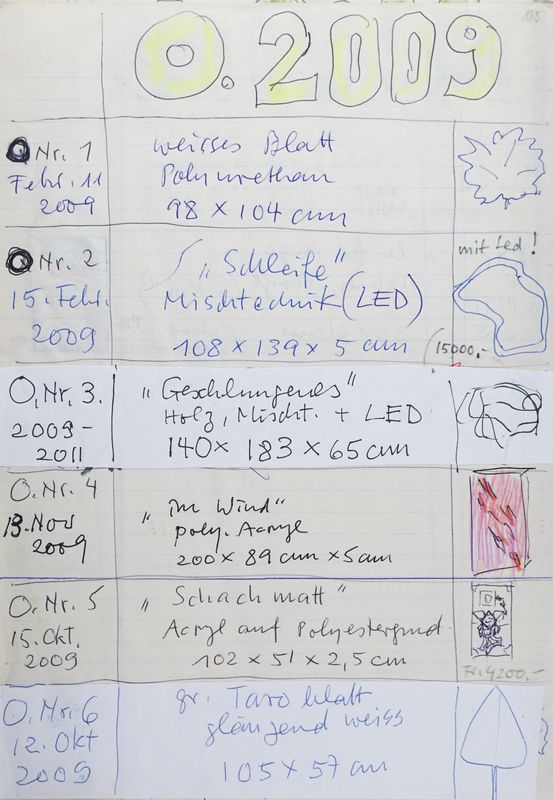 185.
O. 2009
O Nr. 1
Febr. 11
2009
weisses Blatt
Polyurethan
98 x 104 cm
O Nr. 2
15. Febr.
2009
"Schleife"
Mischtechnik (LED)
108 x 139 x 5 cm
mit Led!
(15000.-
O, Nr. 3.
2009-
2011
"Geschlungenes"
Holz, Mischt. + LED
140 x 183 x 65 cm
O. Nr. 4
13. Nov
2009
"im Wind"
poly. Acryl
200 x 89 cm x 5 cm
O. Nr. 5
15. Okt.
2009
"Schach matt"
Acryl auf Polyestergrund.
102 x 51 x 2,5 cm
Fr. 4200.-
O. Nr. 6
12. Okt
2009
gr. Taro blatt
glänzend weiss
105 x 57 cm